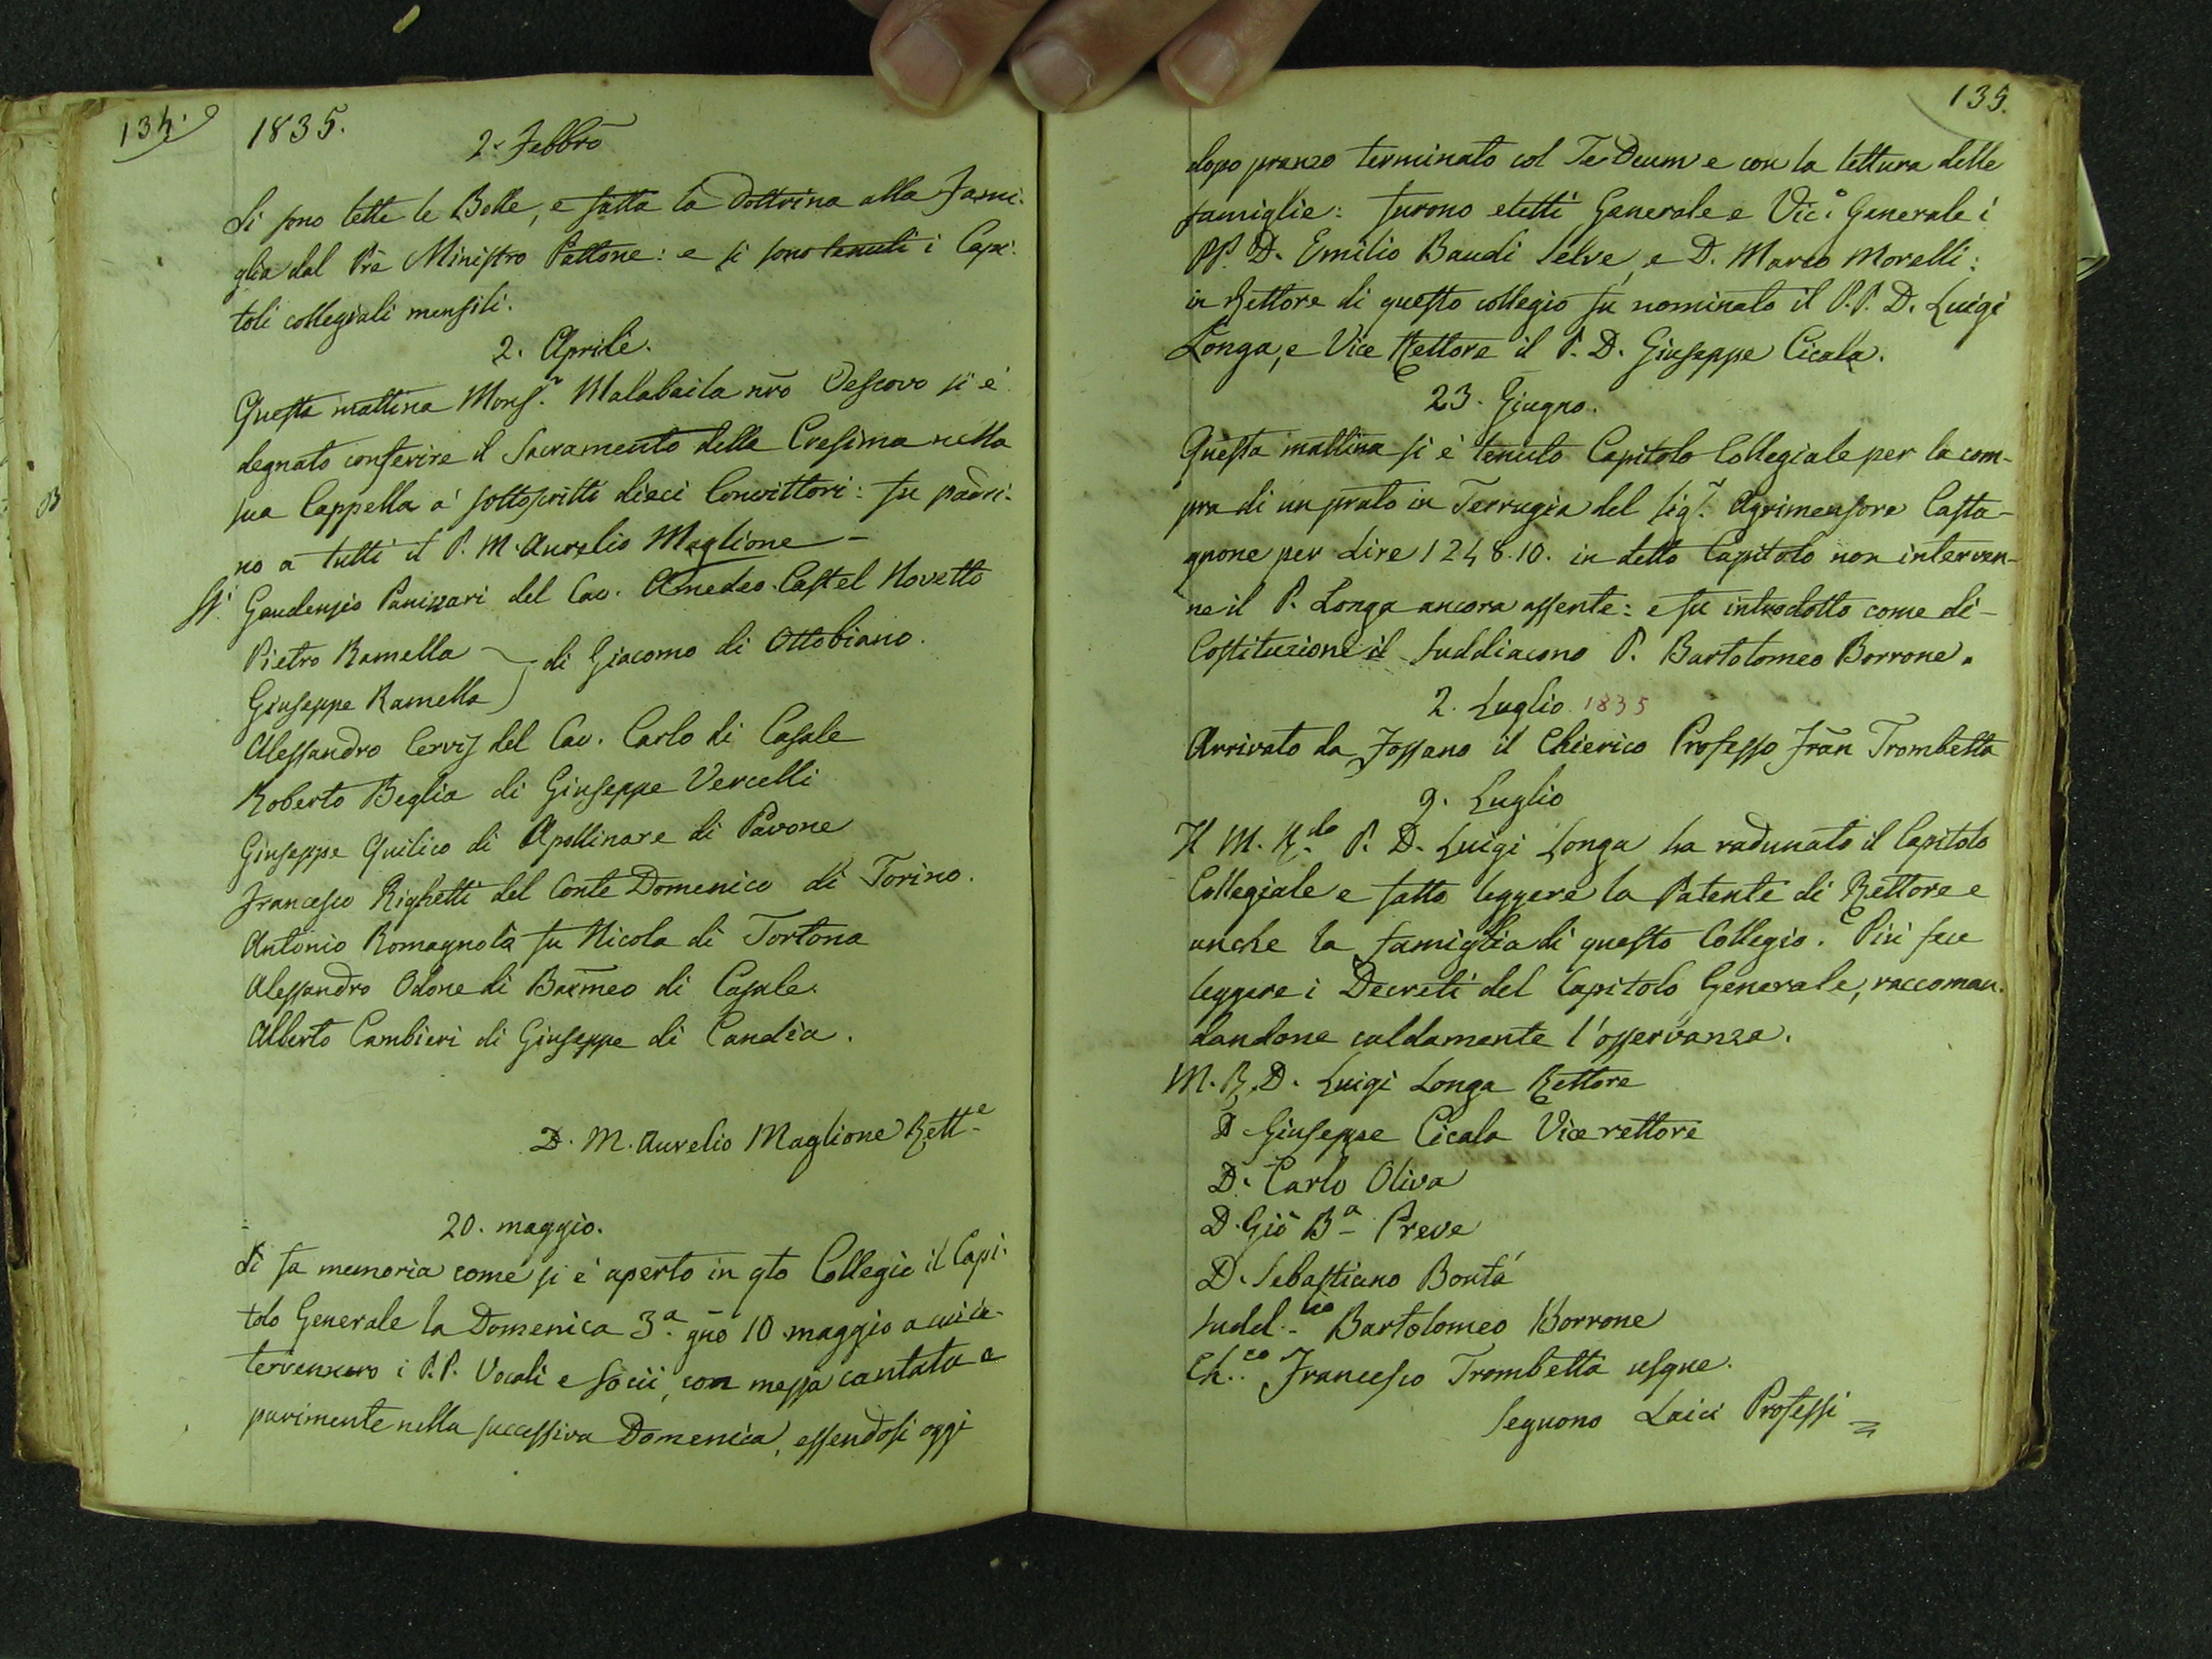 134.
1835.
2. Febbrō
Si sono lette le Bolle, e fatta la Dottrina alla Fami:
glia dal Prē Ministro Pattone: e si sono tenuti i Capi:
toli collegiali mensili.
2. Aprile.
Questa mattina Monsr. Malabaila nr̄o Vescovo si è
degnato conferire il Sacramento della Cresima nella
sua Cappella a' sottoscritti dieci Convittori: fu padri:
no a tutti il P. M. Aurelio Maglione -
SSi. Gaudenzio Panizzari del Cav. Amedeo. Castel Novetto
Pietro Ramella
Giuseppe Ramella } di Giacomo di Ottobiano.
Alessandro Cervis del Cav. Carlo di Casale
Roberto Beglia di Giuseppe Vercelli
Giuseppe Quilico di Apollinare di Pavone
Francesco Righetti del Conte Domenico di Torino.
Antonio Romagnola fu Nicola di Tortona
Alessandro Odone di Bar̄meo di Casale.
Alberto Cambieri di Giuseppe di Candia.
D. M. Aurelio Maglione Rette
20. maggio.
Si fa memoria come si è aperto in qto Collegio il Capi:
tolo Generale la Domenica 3a. gn̄o 10 maggio a cui in-
tervennero i P.P. Vocali e Socii, con messa cantata e
parimente nella successiva Domenica, essendosi oggi
135.
dopo pranzo terminato col Te Deum e con la lettura delle
famiglie: furono eletti Generale e Vico. Generale i
PP. D. Emilio Baudi Selve, e D. Marco Morelli:
in Rettore di questo collegio fu nominato il P.P. D. Luigi
Longa, e Vice Rettore il P. D. Giuseppe Cicala.
23. Giugno.
Questa mattina si è tenuto Capitolo Collegiale per la com-
pra di un prato in Terrugia del Sigr. Agrimensore Casta-
gnone per Lire 1248.10. in detto Capitolo non interven-
ne il P. Longa ancora assente: e fu introdotto come di-
Costituzione il Suddiacono P. Bartolomeo Borrone.
2. Luglio 1835
Arrivato da Fossano il Chierico Professo Frān Trombetta
9. Luglio
Il M. Rdo. P. D. Luigi Longa ha radunato il Capitolo
Collegiale e fatto leggere la Patente di Rettore e
anche la famiglia di questo Collegio. Più fece
leggere i Decreti del Capitolo Generale, raccoman-
dandone caldamente l'osservanza.
M. R. D. Luigi Longa Rettore
D. Giuseppe Cicala Vice rettore
D. Carlo Oliva
D. Giō Ba. Preve
D. Sebastiano Bontà
Suddco. Bartolomeo Borrone
Chco. Francesco Trombetta usque.
Seguono Laici Professi =